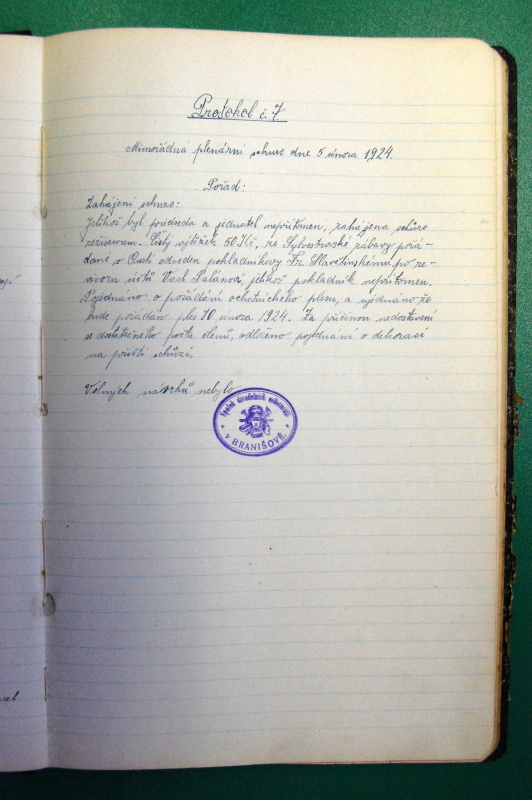 Protokol č. 7.
Mimořádna plenární schuze dne 5 února 1924.
Pořad:
Zahájení schuze:
Jelikož byl předseda a jednatel nepřítomen, zahájena schůze
režiserem. Čistý výtěžek 50 Kč, ze Sylvestrovské zábavy pořá-
dané v odveden pokladníkovy Fr. Slavětínskému po re-
visoru účtů Vacl. jelikož pokladník nepřítomen.
Pojednáno o požádání ochotnického plesu, a ujednáno že
bude pořádán ples 10 února 1924. Za příčinou nedostavení
se dostatečného počtu členů, odloženo pojednání o dekoraci
na příští schůzi.
Volných návrhů nebylo
Spolek divadelních ochotníků
v BRANIŠOVĚ.